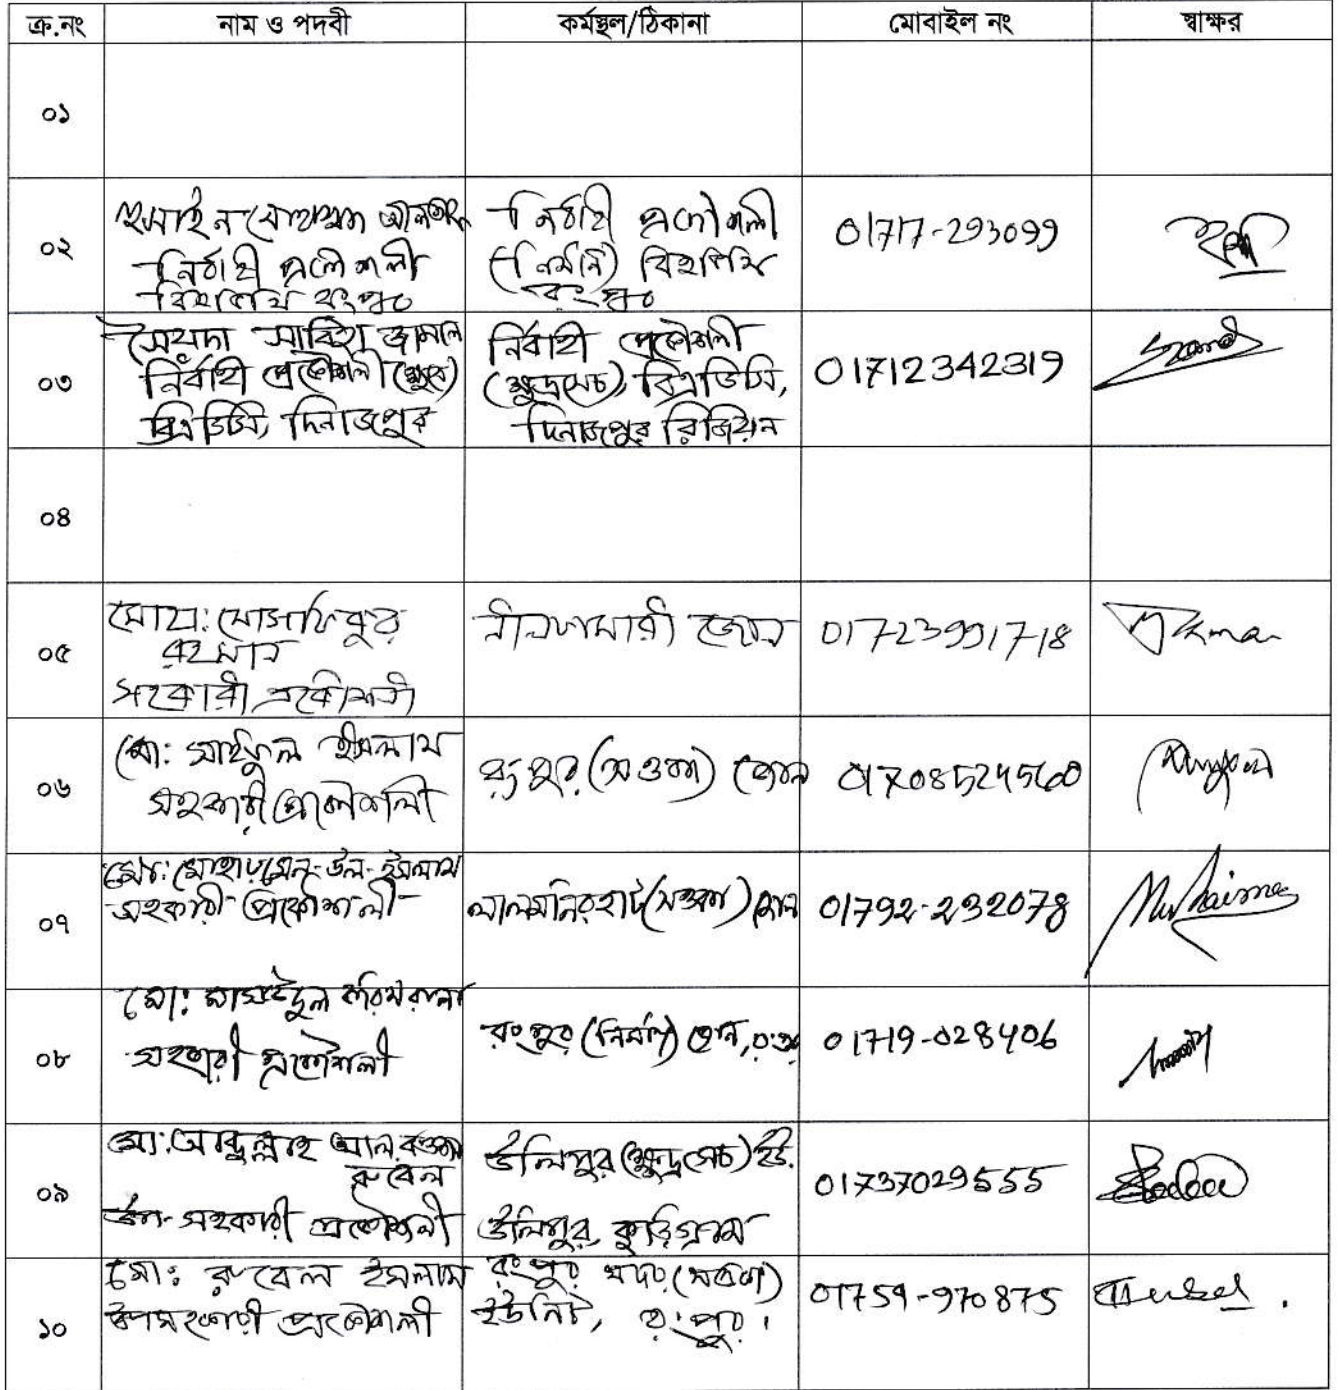 ক্র.নং নাম ও পদবী কর্মস্থল/ঠিকানা মোবাইল নং স্বাক্ষর
০১
০২
হুসাইন মোহাম্মদ আলতাফ
নির্বাহী প্রকৌশলী
বিএডিসি রংপুর
নির্বাহী প্রকৌশলী
(নির্মাণ) বিএডিসি
রংপুর
01717-293099
০৩
সৈয়দা সাবিহা জামাল
নির্বাহী প্রকৌশলী (ক্ষুসে)
বিএডিসি, দিনাজপুর
নির্বাহী প্রকৌশলী
(ক্ষুদ্রসেচ), বিএডিসি,
দিনাজপুর রিজিয়ন
01712342319
০৪
০৫
মোঃ
রহমান
সহকারী প্রকৌশলী
নীলফামারী জোন
01723991718
০৬
মো: সাইফুল ইসলাম
সহকারী প্রকৌশলী
রংপুর (সওকা) জোন
01708524560
০৭
মো: উল-ইসলাম
সহকারী প্রকৌশলী
লালমনিরহাট (সওকা) জোন
01792-232078
০৮
মো:
সহকারী প্রকৌশলী
রংপুর (নির্মাণ) জোন, রংপুর
01719-028406
০৯
মো: আব্দুল্লাহ আল
রুবেল
উপ-সহকারী প্রকৌশলী
উলিপুর (ক্ষুদ্রসেচ) ইউ.
উলিপুর, কুড়িগ্রাম
01737029555
১০
মো: রুবেল ইসলাম
উপসহকারী প্রকৌশলী
রংপুর সদর (সওকা)
ইউনিট, রংপুর।
01759-970875